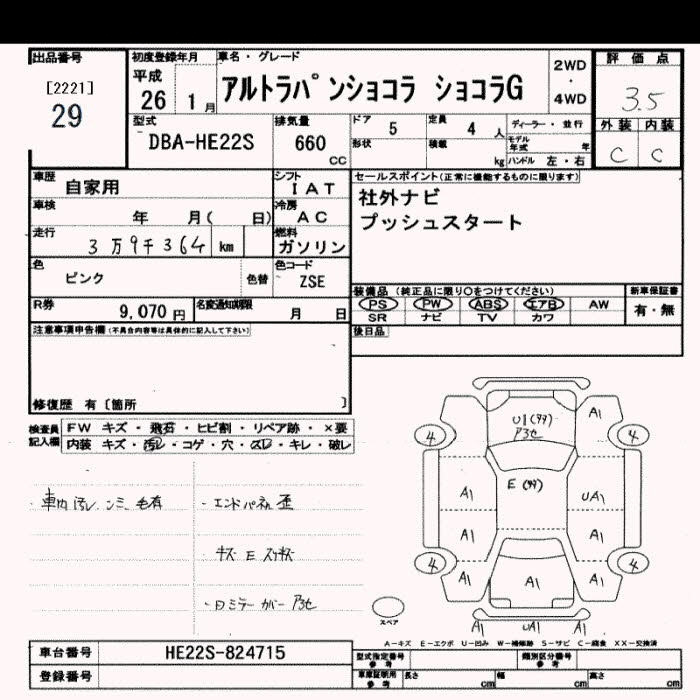 出品番号
[2221]
29
初度登録年月
平成
26 1月
車名・グレード
アルトラパンショコラ ショコラG
2WD
・
4WD
評価点
3.5
外装 内装
C C
型式
DBA-HE22S
排気量
660
cc
ドア 5
定員 4 人
形状
積載 kg
ディーラー・並行
モデル年式 年
ハンドル 左・右
車歴 自家用
シフト
I A T
車検 年 月( 日)
冷房
A C
走行 3万9千364 km
燃料
ガソリン
色
ピンク
色替
色コード
ZSE
セールスポイント(正常に機能するものに限ります)
社外ナビ
プッシュスタート
R券 9,070 円
名変通知期限 月 日
装備品 (純正品に限り○をつけてください)
PS PW ABS エアB AW
SR ナビ TV カワ
新車保証書
有・無
後日品
注意事項申告欄(不具合内容等は具体的に記入して下さい)
修復歴 有〔箇所 〕
検査員記入欄
FW キズ・飛石・ヒビ割・リペア跡・×要
内装 キズ・汚レ・コゲ・穴・スレ・キレ・破レ
・車内汚レ シミ 毛有
・エンドパネル歪
・キズ E スリキズ
・ロミラーカバーアセ
U1
アセ
A1
4
4
E
A1
UA1
A1
A1
4
4
A1
A1
A1
A1
UA1
A1
スペア
A-キズ E-エクボ U-凹み W-補修跡 S-サビ C-腐食 XX-交換済
車台番号 HE22S-824715
登録番号
型式指定番号
参考
類別区分番号
参考
車庫証明用
参考
長さ cm
幅 cm
高さ cm